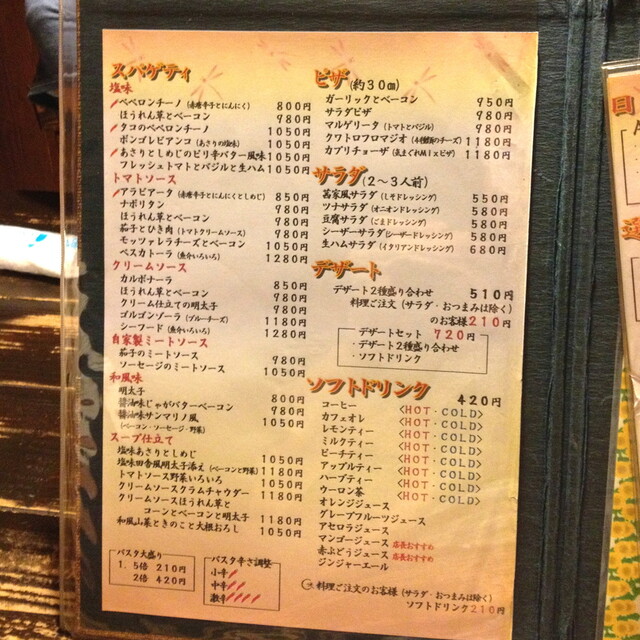 スパゲティ
塩味
ペペロンチーノ (赤唐辛子とにんにく) 800円
ほうれん草とベーコン 980円
タコのペペロンチーノ 1050円
ボンゴレビアンコ (あさりの塩味) 1050円
あさりとしめじのピリ辛バター風味 1050円
フレッシュトマトとバジルと生ハム 1050円
トマトソース
アラビアータ (赤唐辛子とにんにくとしめじ) 850円
ナポリタン 980円
ほうれん草とベーコン 980円
茄子とひき肉 (トマトクリームソース) 980円
モッツァレラチーズとベーコン 1050円
ペスカトーラ (魚介いろいろ) 1280円
クリームソース
カルボナーラ 850円
ほうれん草とベーコン 980円
クリーム仕立ての明太子 980円
ゴルゴンゾーラ (ブルーチーズ) 1180円
シーフード (魚介いろいろ) 1280円
自家製ミートソース
茄子のミートソース 980円
ソーセージのミートソース 1050円
和風味
明太子 800円
醤油味じゃがバターベーコン 980円
醤油味サンマリノ風 1050円
(ベーコン・ソーセージ・野菜)
スープ仕立て
塩味あさりとしめじ 1050円
塩味田舎風明太子添え (ベーコンと野菜) 1180円
トマトソース野菜いろいろ 1050円
クリームソースクラムチャウダー 1180円
クリームソースほうれん草と
コーンとベーコンと明太子 1180円
和風山菜ときのこと大根おろし 1050円
パスタ大盛り
1.5倍 210円
2倍 420円
パスタ辛さ調整
小辛
中辛
激辛
ピザ (約30㎝)
ガーリックとベーコン 950円
サラダピザ 980円
マルゲリータ (トマトとバジル) 980円
クワトロフロマジオ (4種類のチーズ) 1180円
カプリチョーザ (気まぐれMIxピザ) 1180円
サラダ (2～3人前)
茜家風サラダ (しそドレッシング) 550円
ツナサラダ (オニオンドレッシング) 580円
豆腐サラダ (ごまドレッシング) 580円
シーザーサラダ (シーザードレッシング) 580円
生ハムサラダ (イタリアンドレッシング) 680円
デザート
デザート2種盛り合わせ 510円
料理ご注文 (サラダ・おつまみは除く)
のお客様210円
デザートセット 720円
・デザート2種盛り合わせ
・ソフトドリンク
ソフトドリンク 420円
コーヒー <HOT・COLD>
カフェオレ <HOT・COLD>
レモンティー <HOT・COLD>
ミルクティー <HOT・COLD>
ピーチティー <HOT・COLD>
アップルティー <HOT・COLD>
ハーブティー <HOT・COLD>
ウーロン茶 <HOT・COLD>
オレンジジュース
グレープフルーツジュース
アセロラジュース
マンゴージュース 店長おすすめ
赤ぶどうジュース 店長おすすめ
ジンジャーエール
料理ご注文のお客様 (サラダ・おつまみは除く)
ソフトドリンク210円